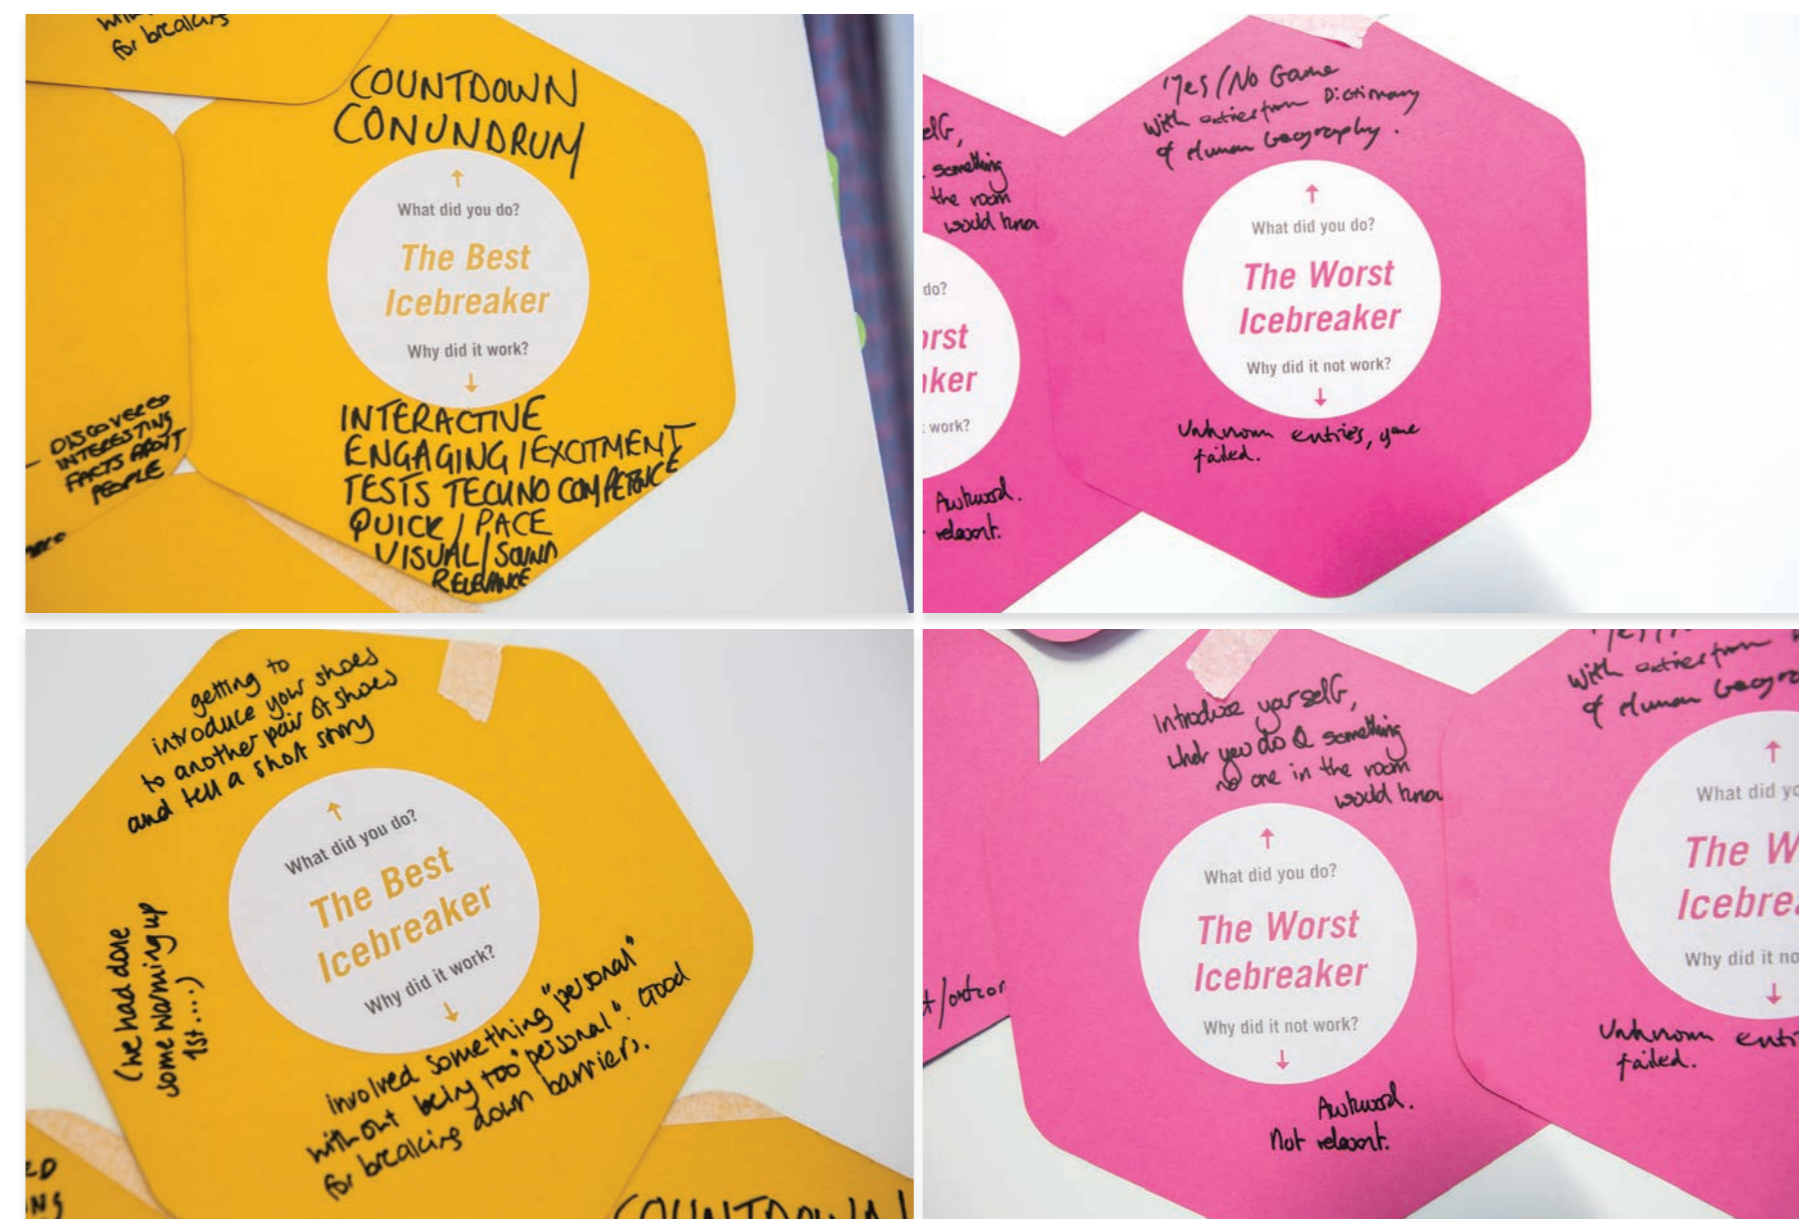 for breaking
COUNTDOWN
CONUNDRUM
What did you do?
The Best
Icebreaker
Why did it work?
INTERACTIVE
ENGAGING / EXCITMENT
TESTS TECHNO COMPETENCE
QUICK / PACE
VISUAL / SOUND
RELEVANCE
- DISCOVERED
INTERESTING
FACTS ABOUT
PEOPLE
Yes/No Game
With entries from Dictionary
of Human Geography.
What did you do?
The Worst
Icebreaker
Why did it not work?
Unknown entries, game
failed.
elf,
something
the room
would know
do?
orst
aker
work?
Awkward.
relevant.
getting to
introduce your shoes
to another pair of shoes
and tell a short story
What did you do?
The Best
Icebreaker
Why did it work?
(he had done
some warming up
1st....)
involved something "personal"
without being too "personal". Good
for breaking down barriers.
COUNTDOWN
Introduce yourself,
what you do & something
no one in the room
would know
What did you do?
The Worst
Icebreaker
Why did it not work?
Awkward.
Not relevant.
Yes/N
With entries from
of Human Geogra
What did yo
The W
Icebrea
Why did it no
Unknown entri
failed.